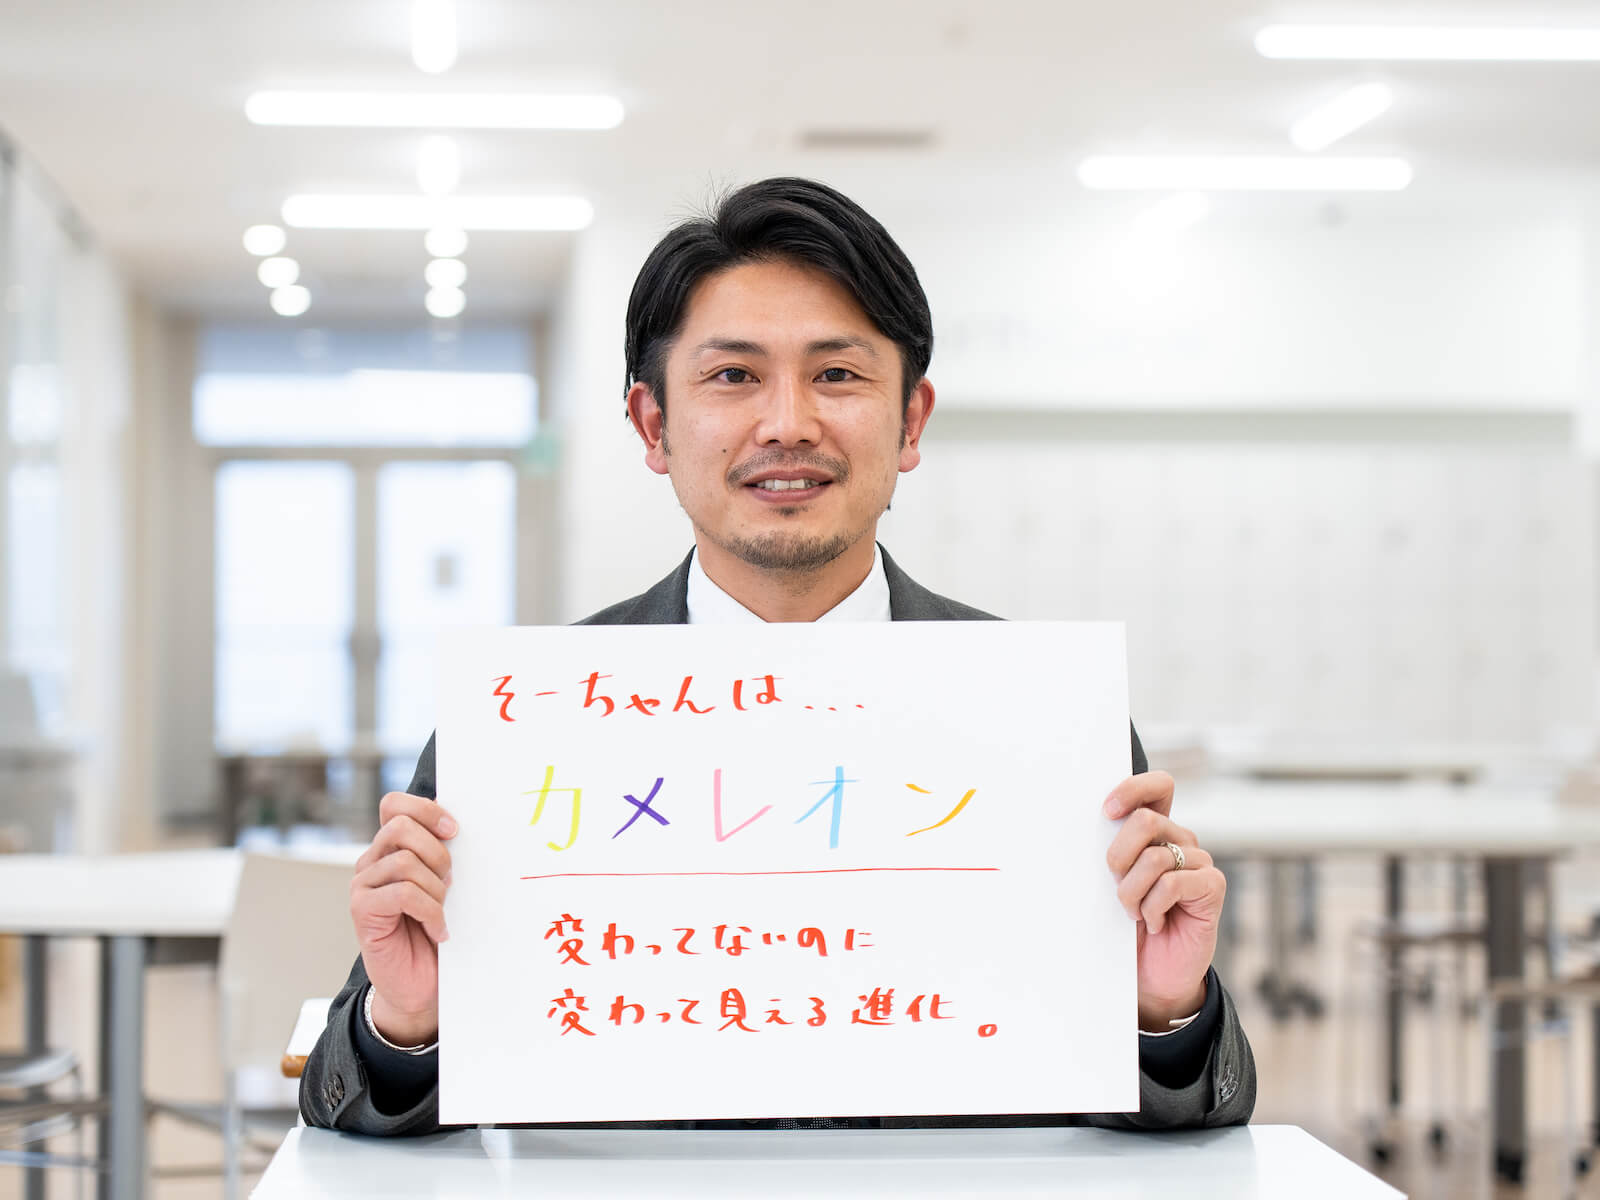 そーちゃんは...
カメレオン
変わってないのに
変わって見える進化。